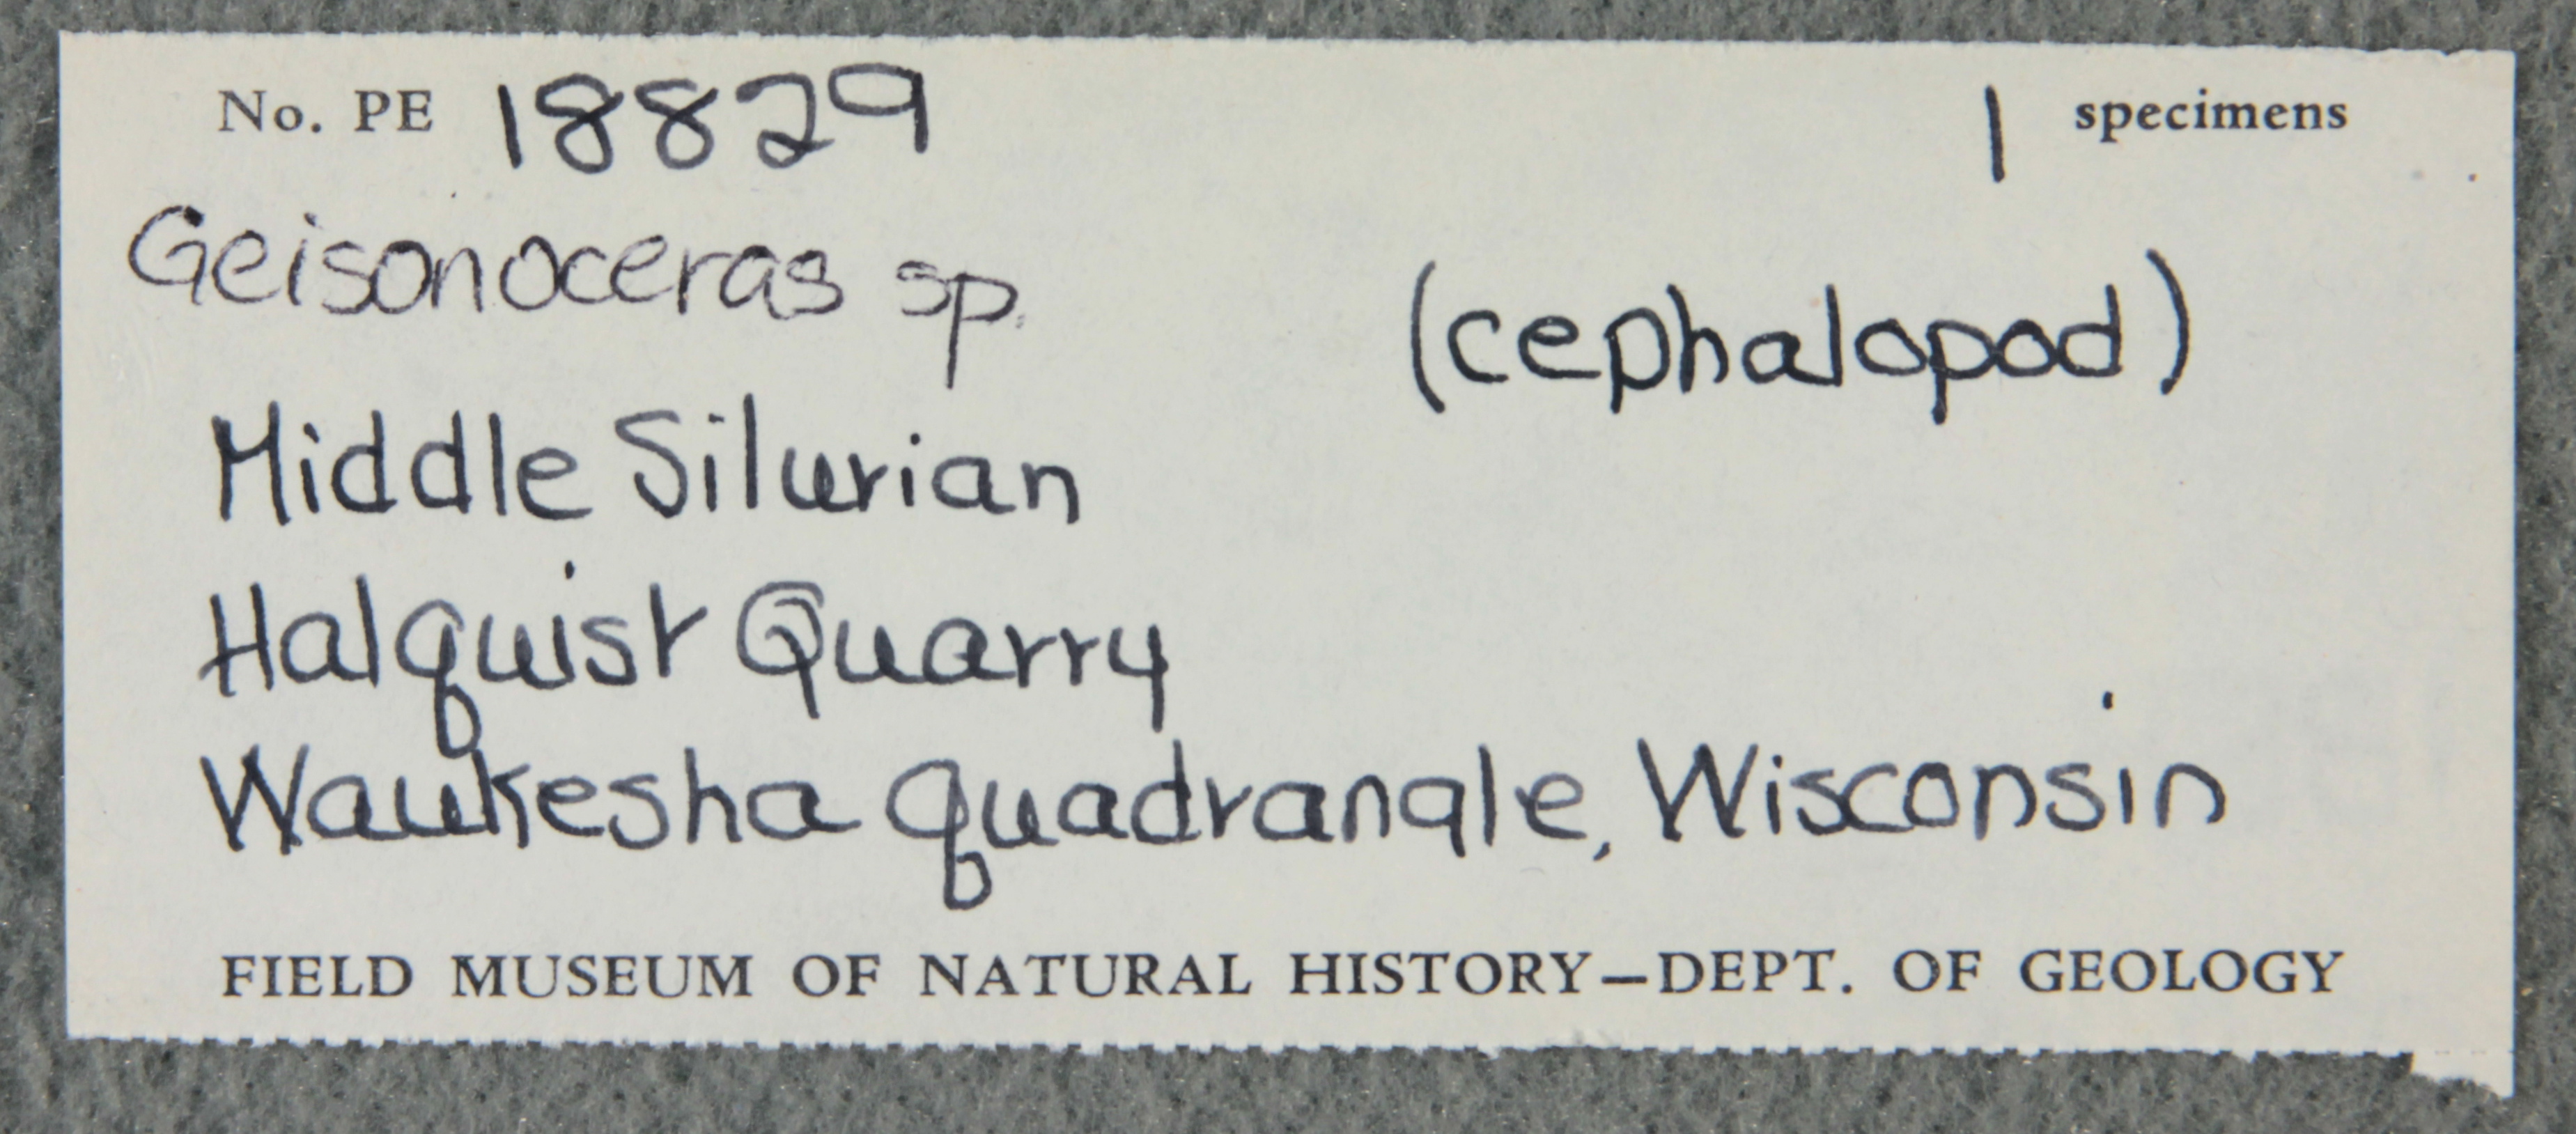 No. PE 18829 1 specimens
Geisonoceras sp.
(cephalopod)
Middle Silurian
Halquist Quarry
Waukesha quadrangle, Wisconsin
FIELD MUSEUM OF NATURAL HISTORY—DEPT. OF GEOLOGY